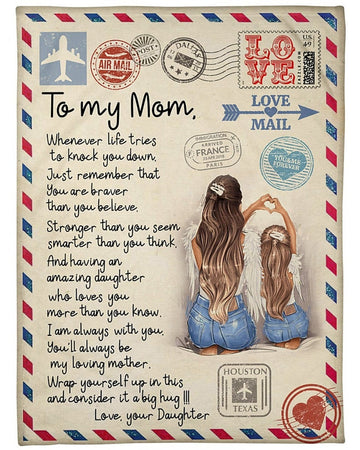 US
49
AIR MAIL
POST
DALLAS
LOVE
To my Mom,
LOVE
MAIL
Whenever life tries
to knock you down.
Just remember that
You are braver
than you believe.
Stronger than you seem
smarter than you think.
And having an
amazing daughter
who loves you
more than you know.
I am always with you.
You'll always be
my loving mother.
Wrap yourself up in this
and consider it a big hug !!!
Love, your Daughter
IMMIGRATION
ARRIVED
FRANCE
PARIS
YOU & ME
FOREVER
HOUSTON
TEXAS